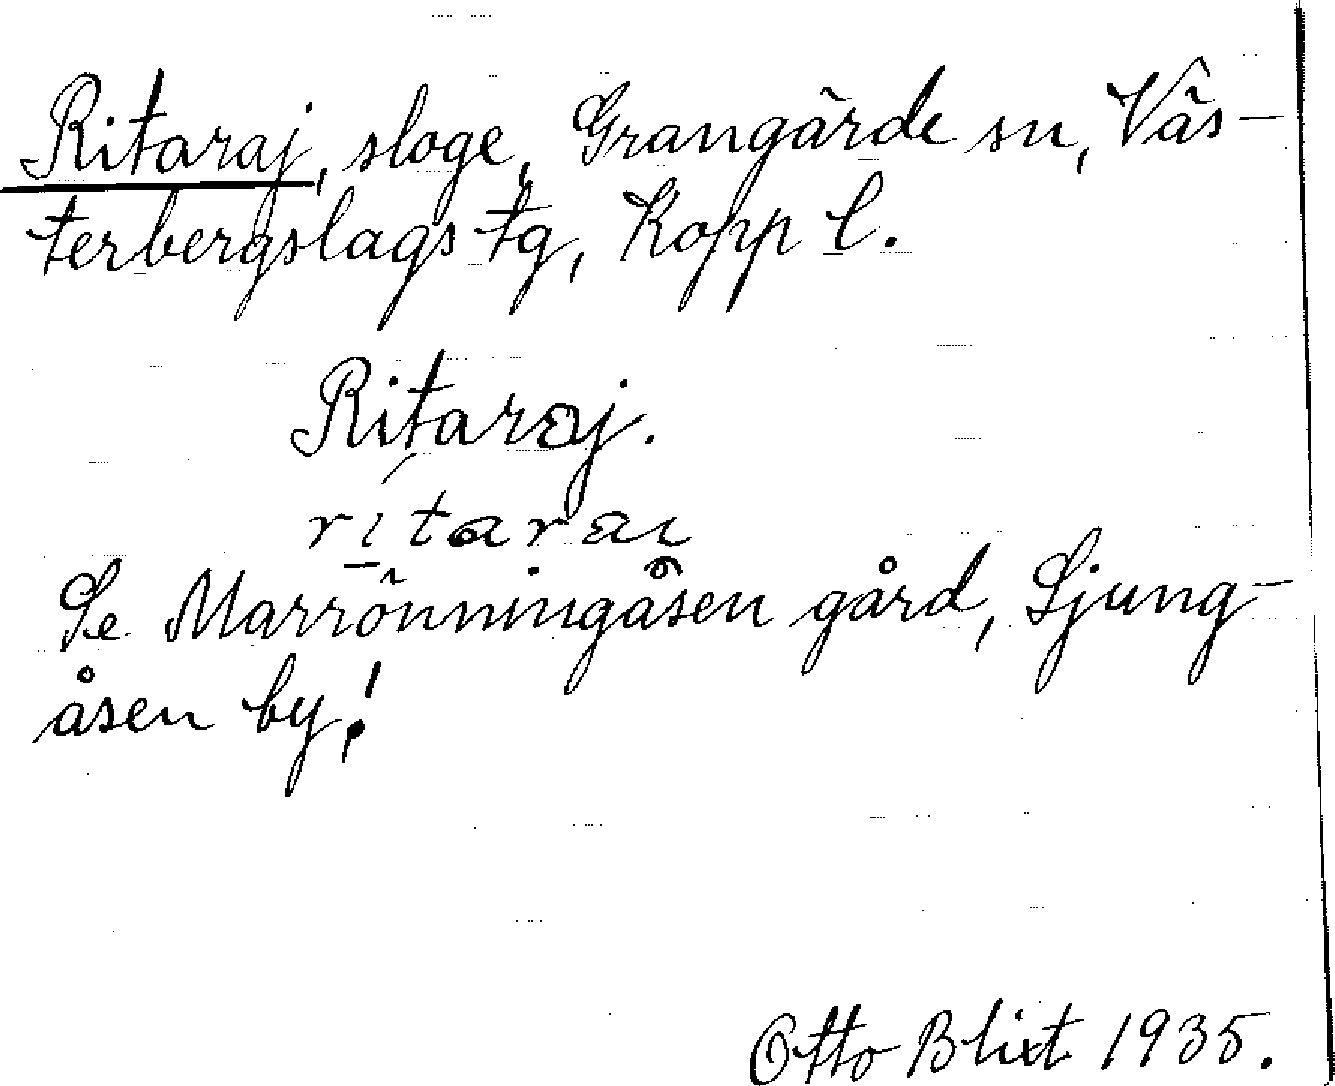 Ritaraj, sloge, Grangärde sn, Väs-
terbergslags tg, Kopp l.
Ritaraj.
ri̠taraı
Se Marrönningåsen gård, Ljung-
åsen by!
Otto Blixt 1935.